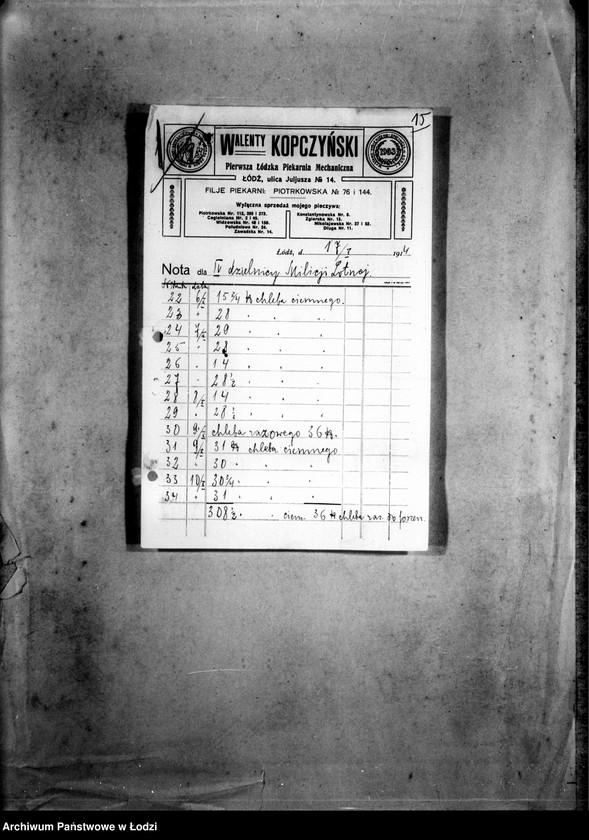 15
WALENTY KOPCZYŃSKI
1903
Pierwsza Łódzka Piekarnia Mechaniczna
ŁÓDŹ, ulica Juljusza № 14.
FILJE PIEKARNI: PIOTRKOWSKA № 76 i 144.
Wyłączna sprzedaż mojego pieczywa:
Piotrkowska Nr. 112, 255 i 273.
Cegielniana Nr. 2 i 45.
Widzewska Nr. 48 i 150.
Południowa Nr. 24.
Zawadzka Nr. 14.
Konstantynowska Nr. 5.
Zgierska Nr. 13.
Mikołajewska Nr. 27 i 52.
Długa Nr. 11.
Łódź, d. 17/X 1914
Nota dla IV dzielnicy Milicji Lotnej.
data
22 6/X 15 3/4 ℔ chleba ciemnego.
23 " 28 " "
24 7/X 29 " "
25 " 28 " "
26 " 14 " "
27 " 28 1/2 " "
28 8/X 14 " "
29 " 28 1/2 " "
30 9/X chleba razowego 36 ℔.
31 9/X 31 ℔ chleba ciemnego
32 " 30 " "
33 10/X 30 3/4 " "
34 " 31 " "
308 1/2 " " ciem. 36 ℔ chleba raz.
Archiwum Państwowe w Łodzi